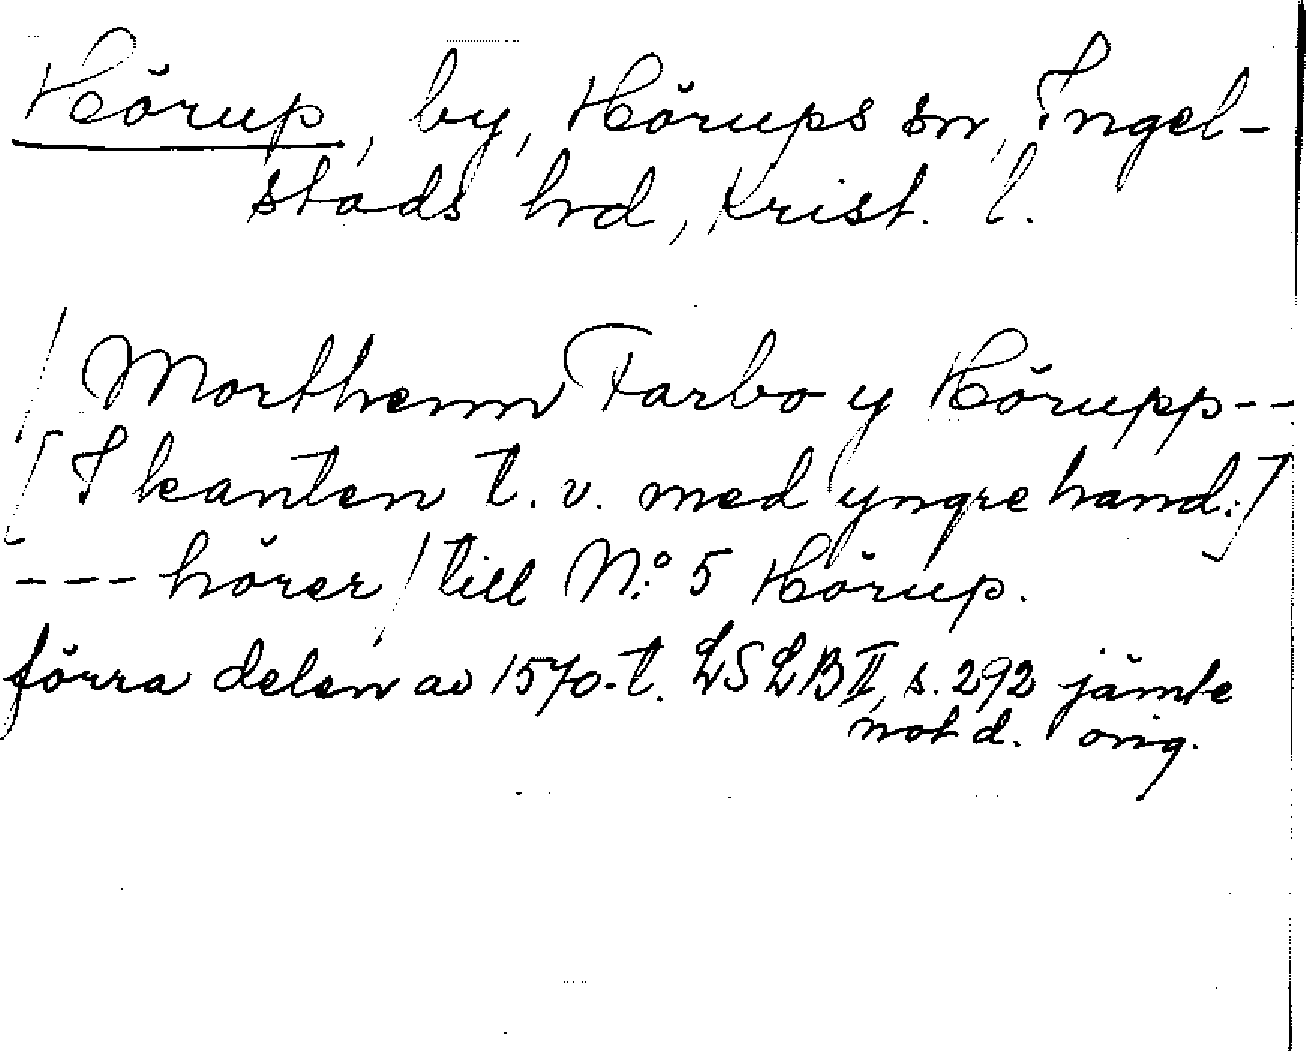 Hörup, by, Hörups sn, Ingel-
stads hd, Krist. l.
/ Morthenn Farbo y Hörupp--
[I kanten t. v. med yngre hand:]
--- hörer / till N:o 5 Hörup.
förra delen av 1570-t. LSLB II, s. 292 jämte
not d. orig.